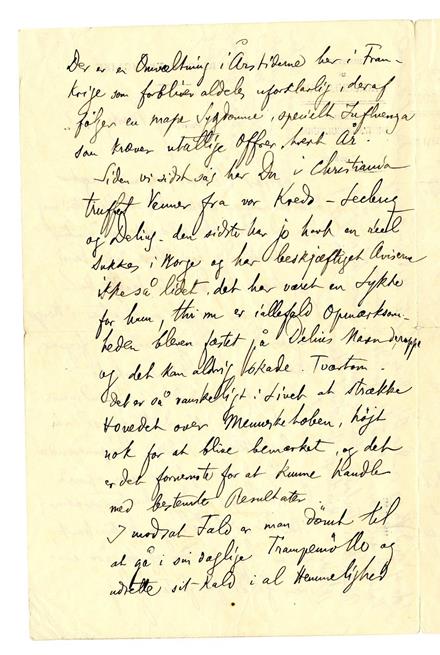 Der er en Omvæltning i Årstiderne her i Fran-
krige som forbliver aldeles uforklarlig, deraf
følger en masse Sygdomme, specielt Influenza
som kræver utallige Offrer, hvert År.
Siden vi sidst såg har Du i Christiania
truffet Venner fra vor Kreds - Leclerq
og Delius - den sidste har jo havt en reel
Sukkes i Norge og har beskjæftiget Aviserne
ikke så lidet. det har været en Lykke
for ham, thi nu er iallefald Opmærksom-
heden bleven fæstet på Delius Navn deroppe
og det kan aldrig skade. Tvertom.
det er så vanskeligt i Livet at strække
Hovedet over Menneskehoben, højt
nok for at blive bemærket, og det
er det fornemste for at kunne handle
med bestemte Resultater
I modsat Fald er man dömt til
at gå i sin daglige Trampemölle og
udrette sit Kald i al Hemmelighed